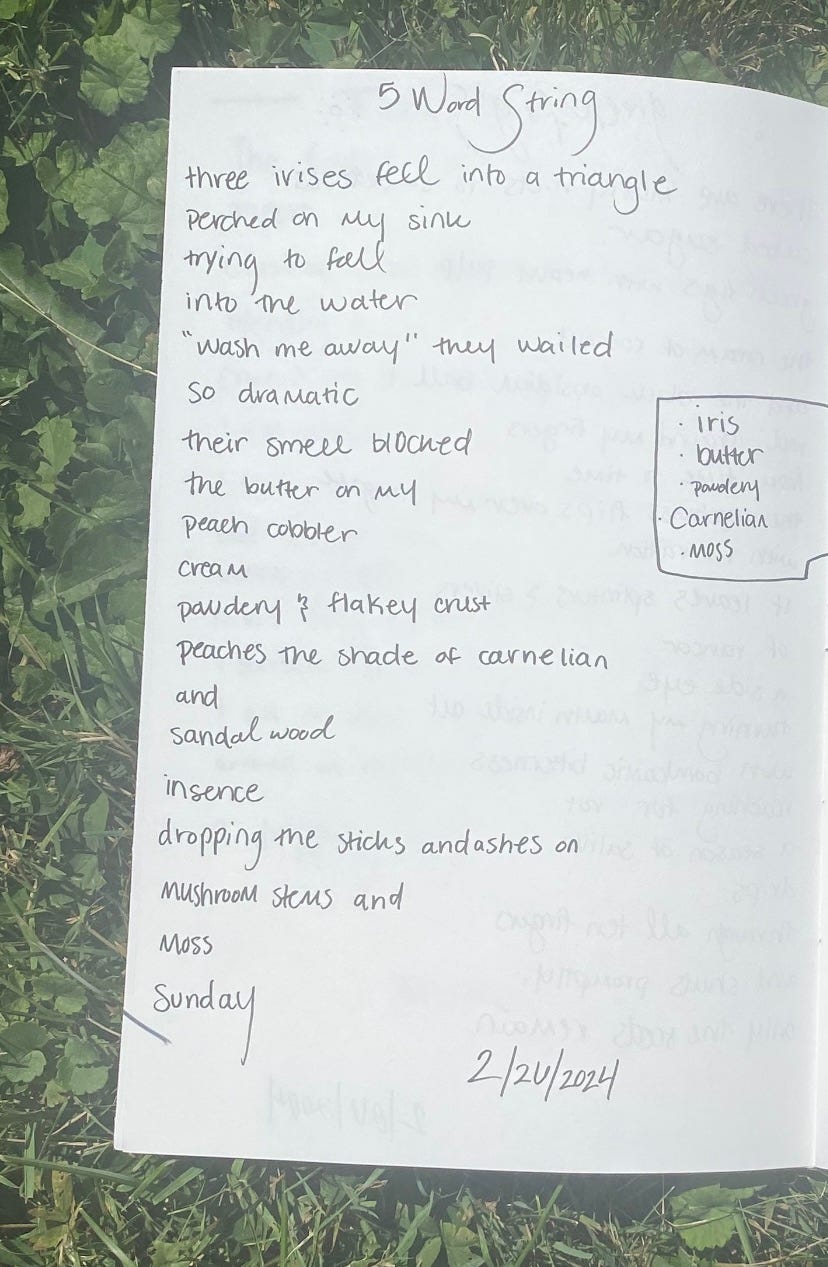 5 Word String
three irises fell into a triangle
perched on my sink
trying to fall
into the water
"wash me away" they wailed
so dramatic
their smell blocked
the butter on my
peach cobbler
cream
powdery & flakey crust
peaches the shade of carnelian
and
sandal wood
insence
dropping the sticks and ashes on
mushroom stems and
moss
Sunday
2/24/2024
· iris
· butter
· powdery
· Carnelian
· moss